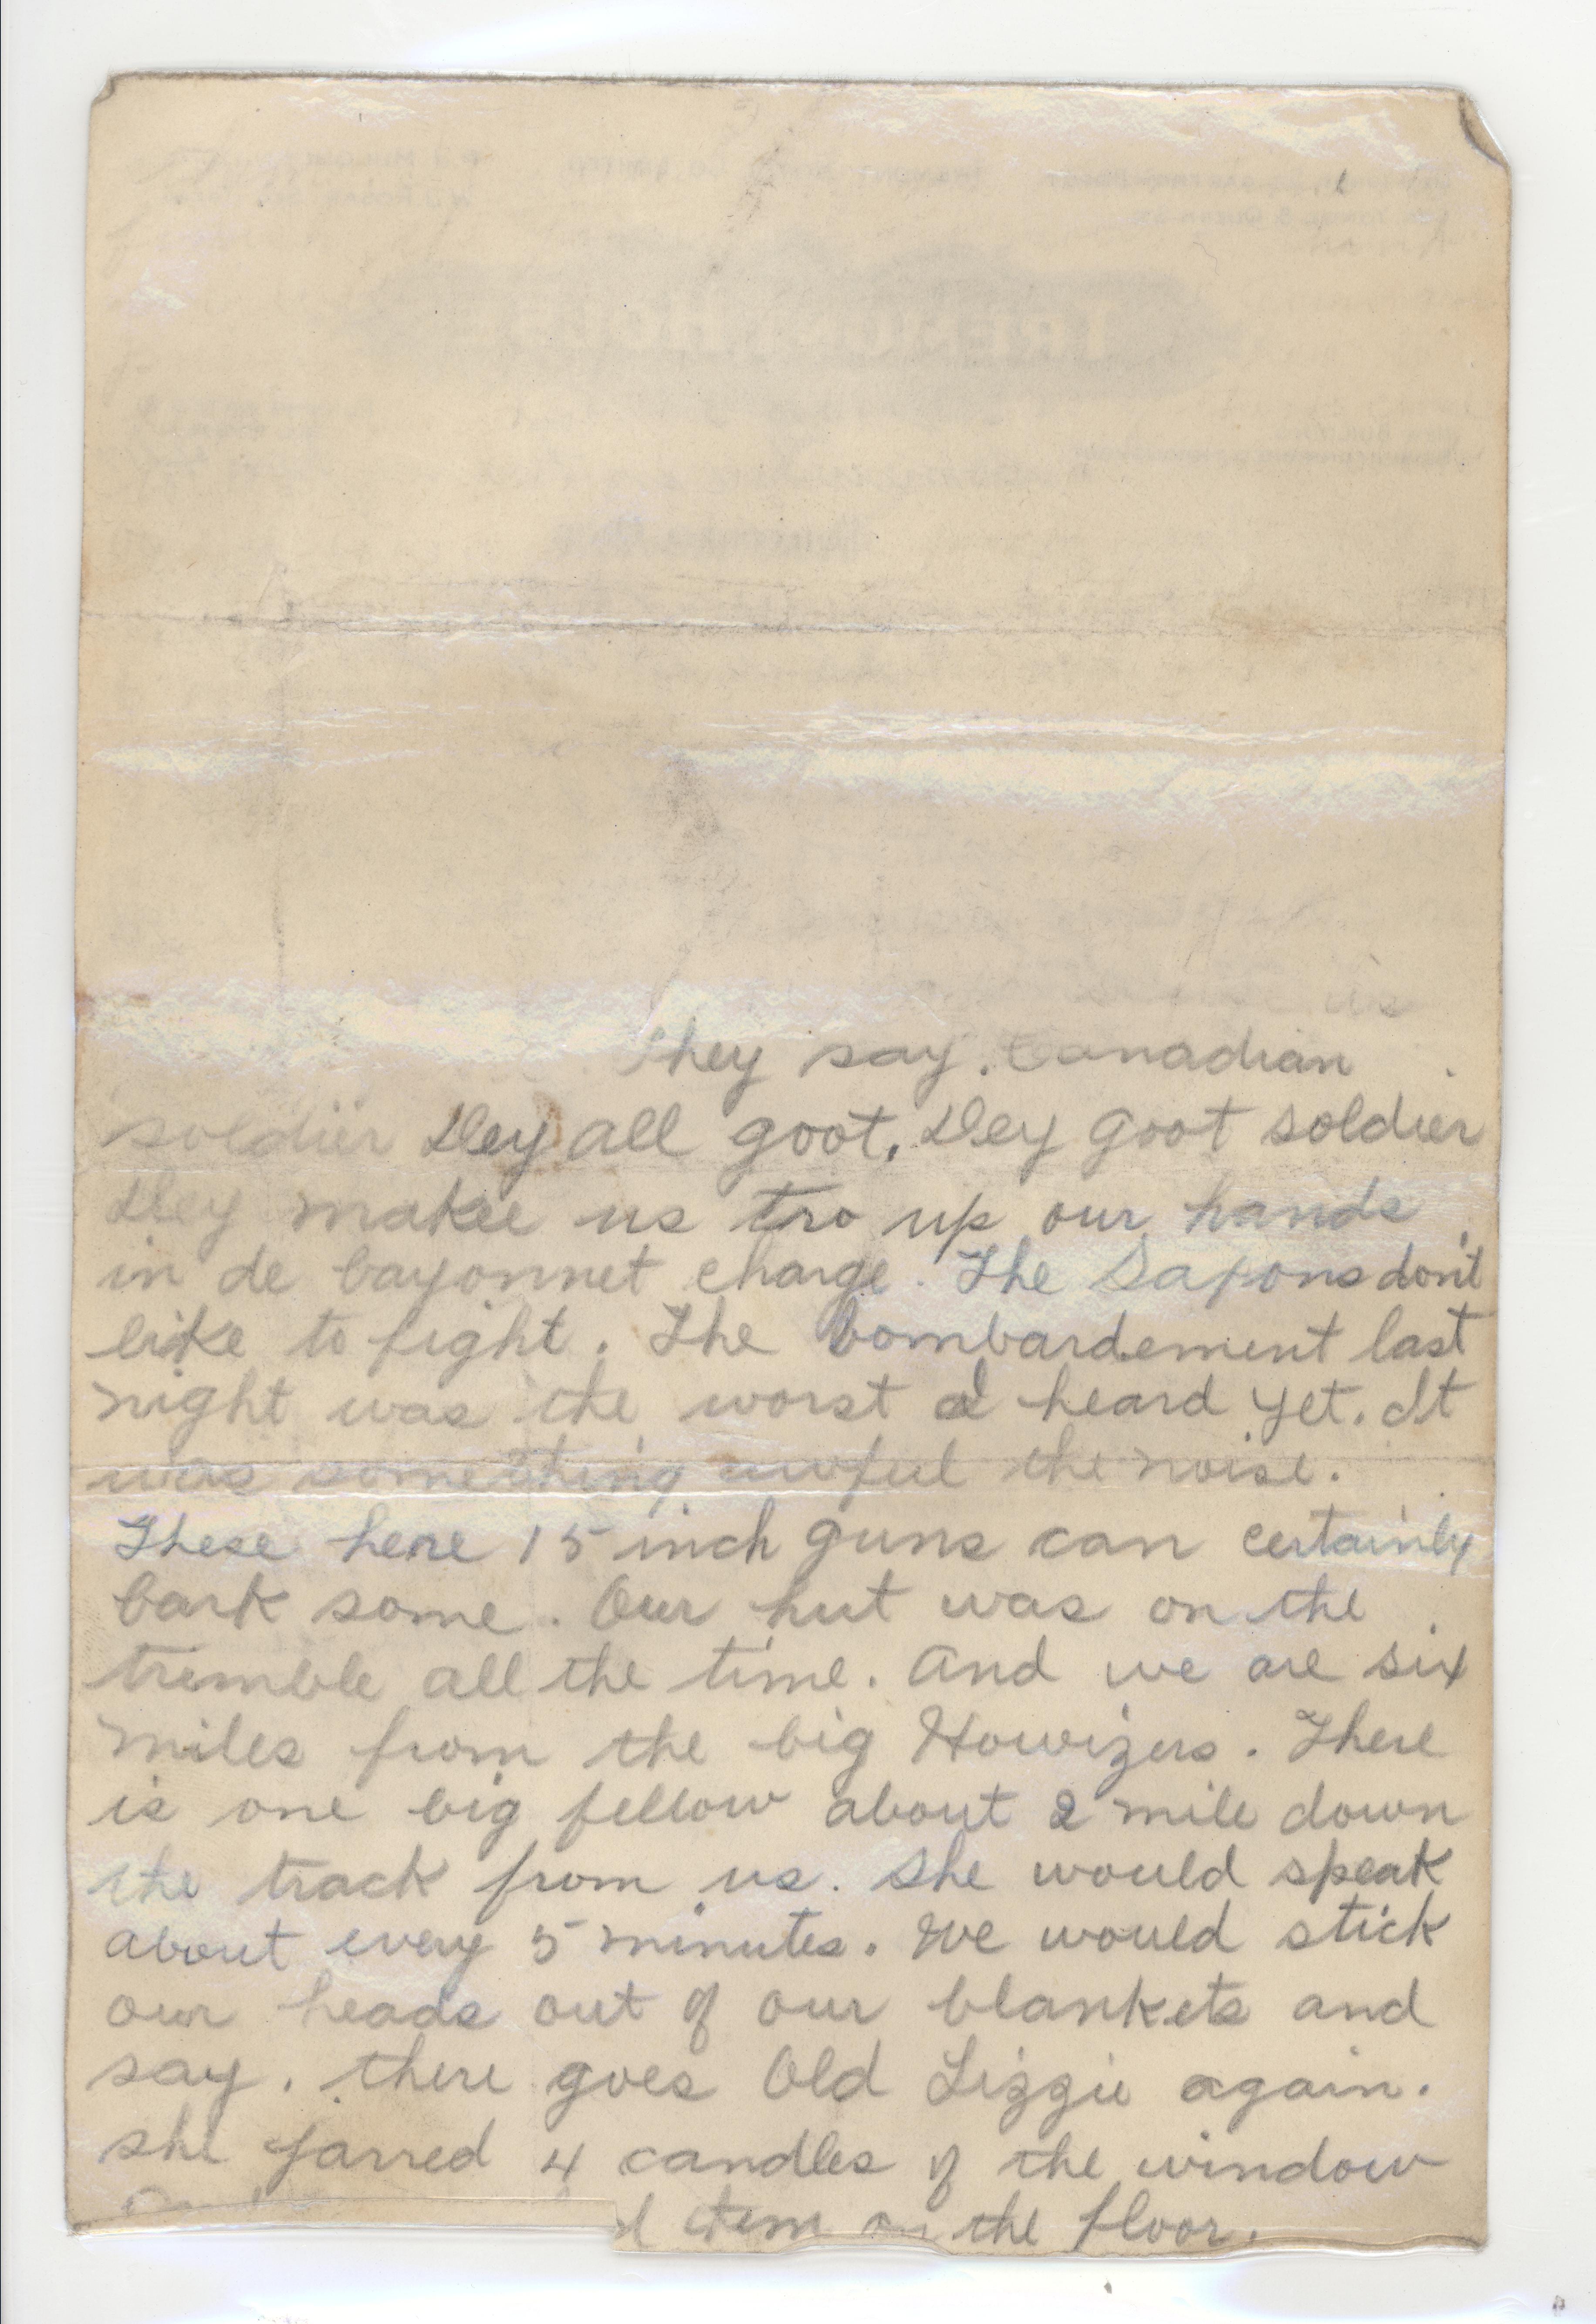 they say. Canadian
soldier Dey all goot. Dey goot soldier
Dey makee us tro up our hands
in de bayonnet charge. The Saxons dont
like to fight. The bombardement last
night was the worst I heard yet. It
was something awful the noise.
These here 15 inch guns can certainly
bark some. Our hut was on the
tremble all the time. And we are six
miles from the big Howizers. There
is one big fellow about 2 mile down
the track from us. She would speak
about every 5 minutes. We would stick
our heads out of our blankets and
say. there goes Old Lizzie again.
she jarred 4 candles of the window
them on the floor.